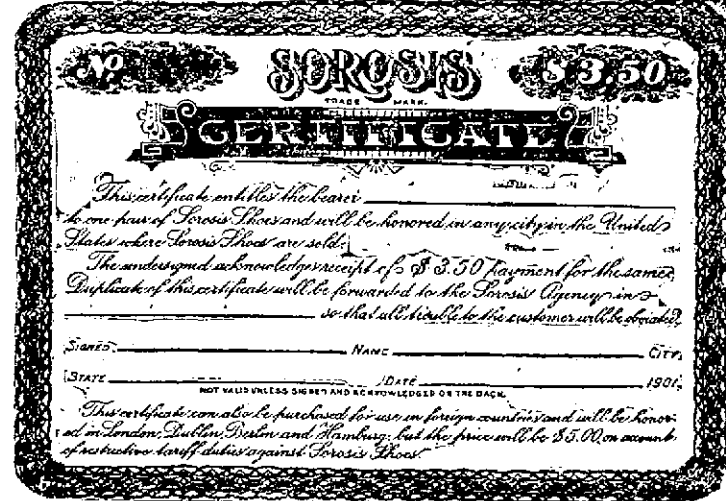 No SOROSIS $3.50
TRADE MARK.
CERTIFICATE
This certificate entitles the bearer
to one pair of Sorosis Shoes and will be honored in any city in the United
States where Sorosis Shoes are sold.
The undersigned acknowledges receipt of $3.50 payment for the same.
Duplicate of this certificate will be forwarded to the Sorosis Agency in
so that all trouble to the customer will be obviated.
SIGNED NAME CITY,
STATE DATE 1901.
NOT VALID UNLESS SIGNED AND ACKNOWLEDGED ON THE BACK.
This certificate can also be purchased for use in foreign countries and will be honor-
ed in London, Dublin, Berlin and Hamburg, but the price will be $5.00, on account
of restrictive tariff duties against Sorosis Shoes.